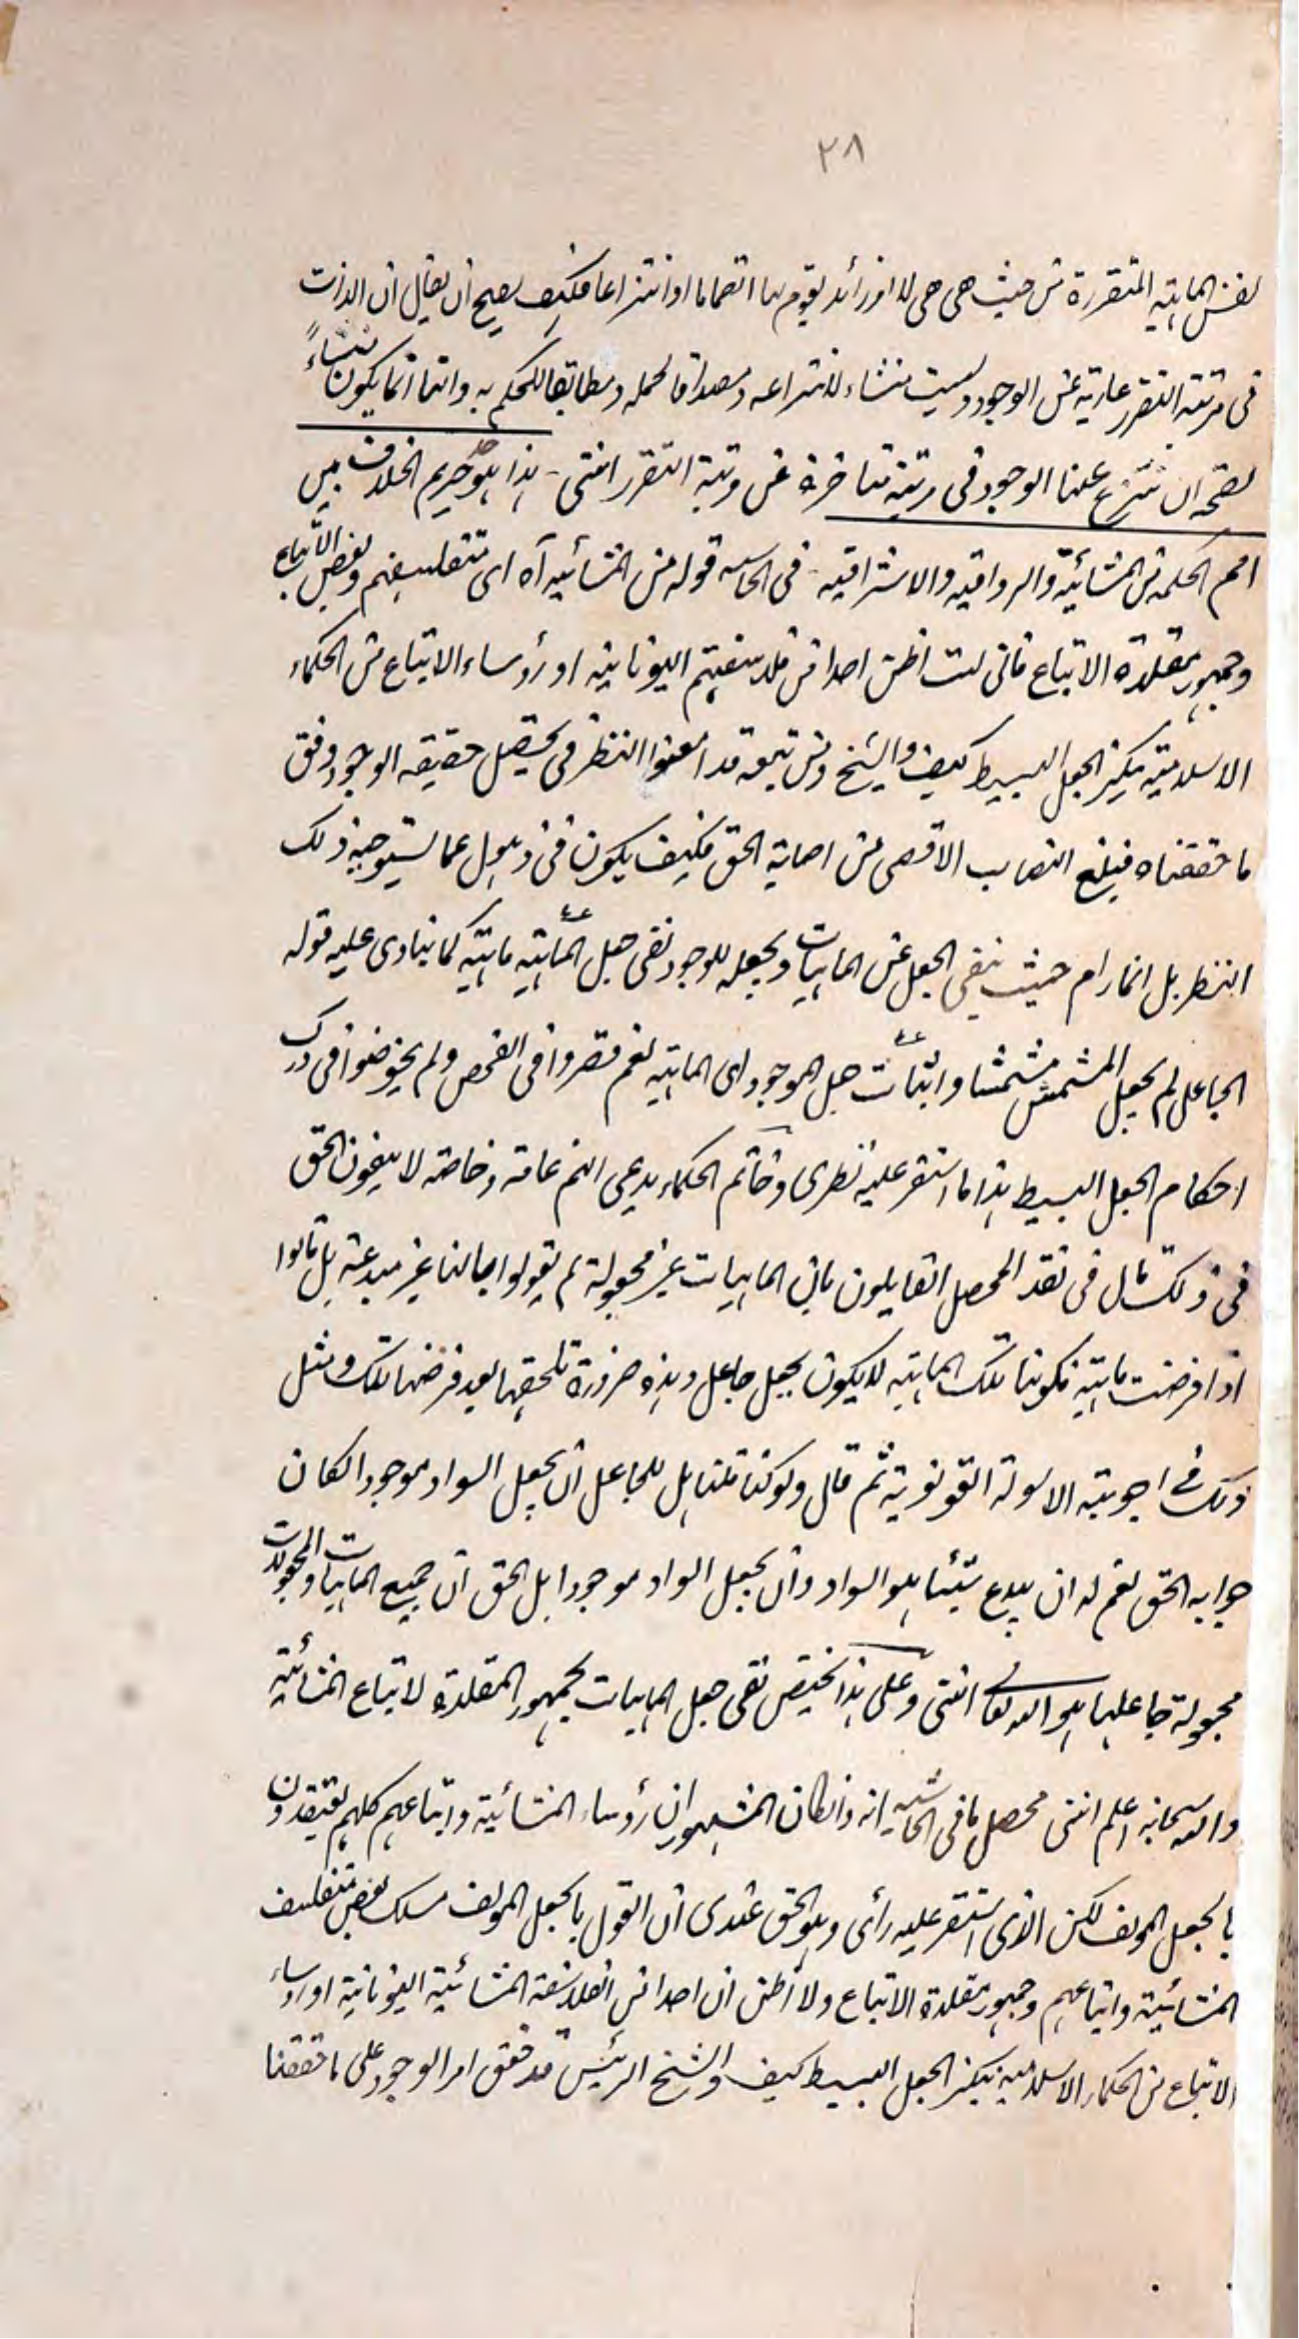 ٢٨
نفس الماهية المتقررة من حيث هى هى لا امر زائد يقوم بها انضماما او انتزاعا فكيف يصح ان يقال ان الذات
فى مرتبة التقرر عارية عن الوجود وليست منشاء لانتزاعه ومصداقا لحمله ومطابقا للحكم به وانما يكون منشاءً
يصحح ان ينتزع عنها الوجود فى مرتبة متاخرة عن مرتبة التقرر انتهى - هذا هو حريم الخلاف بين
امم الحكمة من المشائية والرواقية والاشراقية - فى الحاشيه قوله من المشائيه آه اى متفلسفيهم وبعض الاتباع
وجمهور مقلدة الاتباع فانى لست اظن احدا من فلاسفتهم اليونانية او رؤساء الاتباع من الحكماء
الاسلامية ينكر الجعل البسيط كيف والشيخ ومن تبعه قد امعنوا النظر فى تحصيل حقيقه الوجود وفق
ما حققناه فبلغ النصاب الاقصى من اصابة الحق فكيف يكون فى ذهول عما يستوجبه ذلك
النظر بل انما رام حيث ينفى الجعل عن الماهيات ويجعله للوجود نفى جعل الماهيّة ماهيّة كما ينادى عليه قوله
الجاعل لم يجعل المشمش مشمشا واثبات جعل الموجود اى الماهيه نعم قصروا فى الفحص ولم يخوضوا فى درك
احكام الجعل البسيط هذا ما استقر عليه نظرى وخاتم الحكماء يدعى انهم عامة وخاصة لا ينفون الحق
فى ذلك قال فى نقد المحصل القايلون بان الماهيات غير مجعولة لم يقولوا بانها غير مبدعة بل قالوا
اذا فرضت ماهية فكونها تلك الماهية لا يكون بجعل جاعل وهذه ضرورة تلحقها بعد فرضها تلك ومثل
ذلك فى اجوبته الاسولة القونوية ثم قال ولو كنا قلنا هل للجاعل ان يجعل السواد موجودا لكان
جوابه الحق نعم له ان يبدع شيئا هو السواد وان يجعل السواد موجودا بل الحق ان جميع الماهيات والمجعولات
مجعولة جاعلها هو الله تعالى انتهى وعلى هذا يختص نفى جعل الماهيات بجمهور المقلدة لاتباع المشائية
والله سبحانه اعلم انتهى محصل ما فى الحاشيه انه وان كان المشهور ان رؤساء المشائية واتباعهم كلهم يعتقدون
بالجعل المولف لكن الذى استقر عليه رأى وهو الحق عندى ان القول بالجعل المولف مسلك بعض متفلسف
المشائية واتباعهم وجمهور مقلدة الاتباع ولا أظن ان احدا من الفلاسفة المشائية اليونانية او رؤساء
الاتباع من الحكماء الاسلامية ينكر الجعل البسيط كيف والشيخ الرئيس قد حقق امر الوجود على ما حققنا